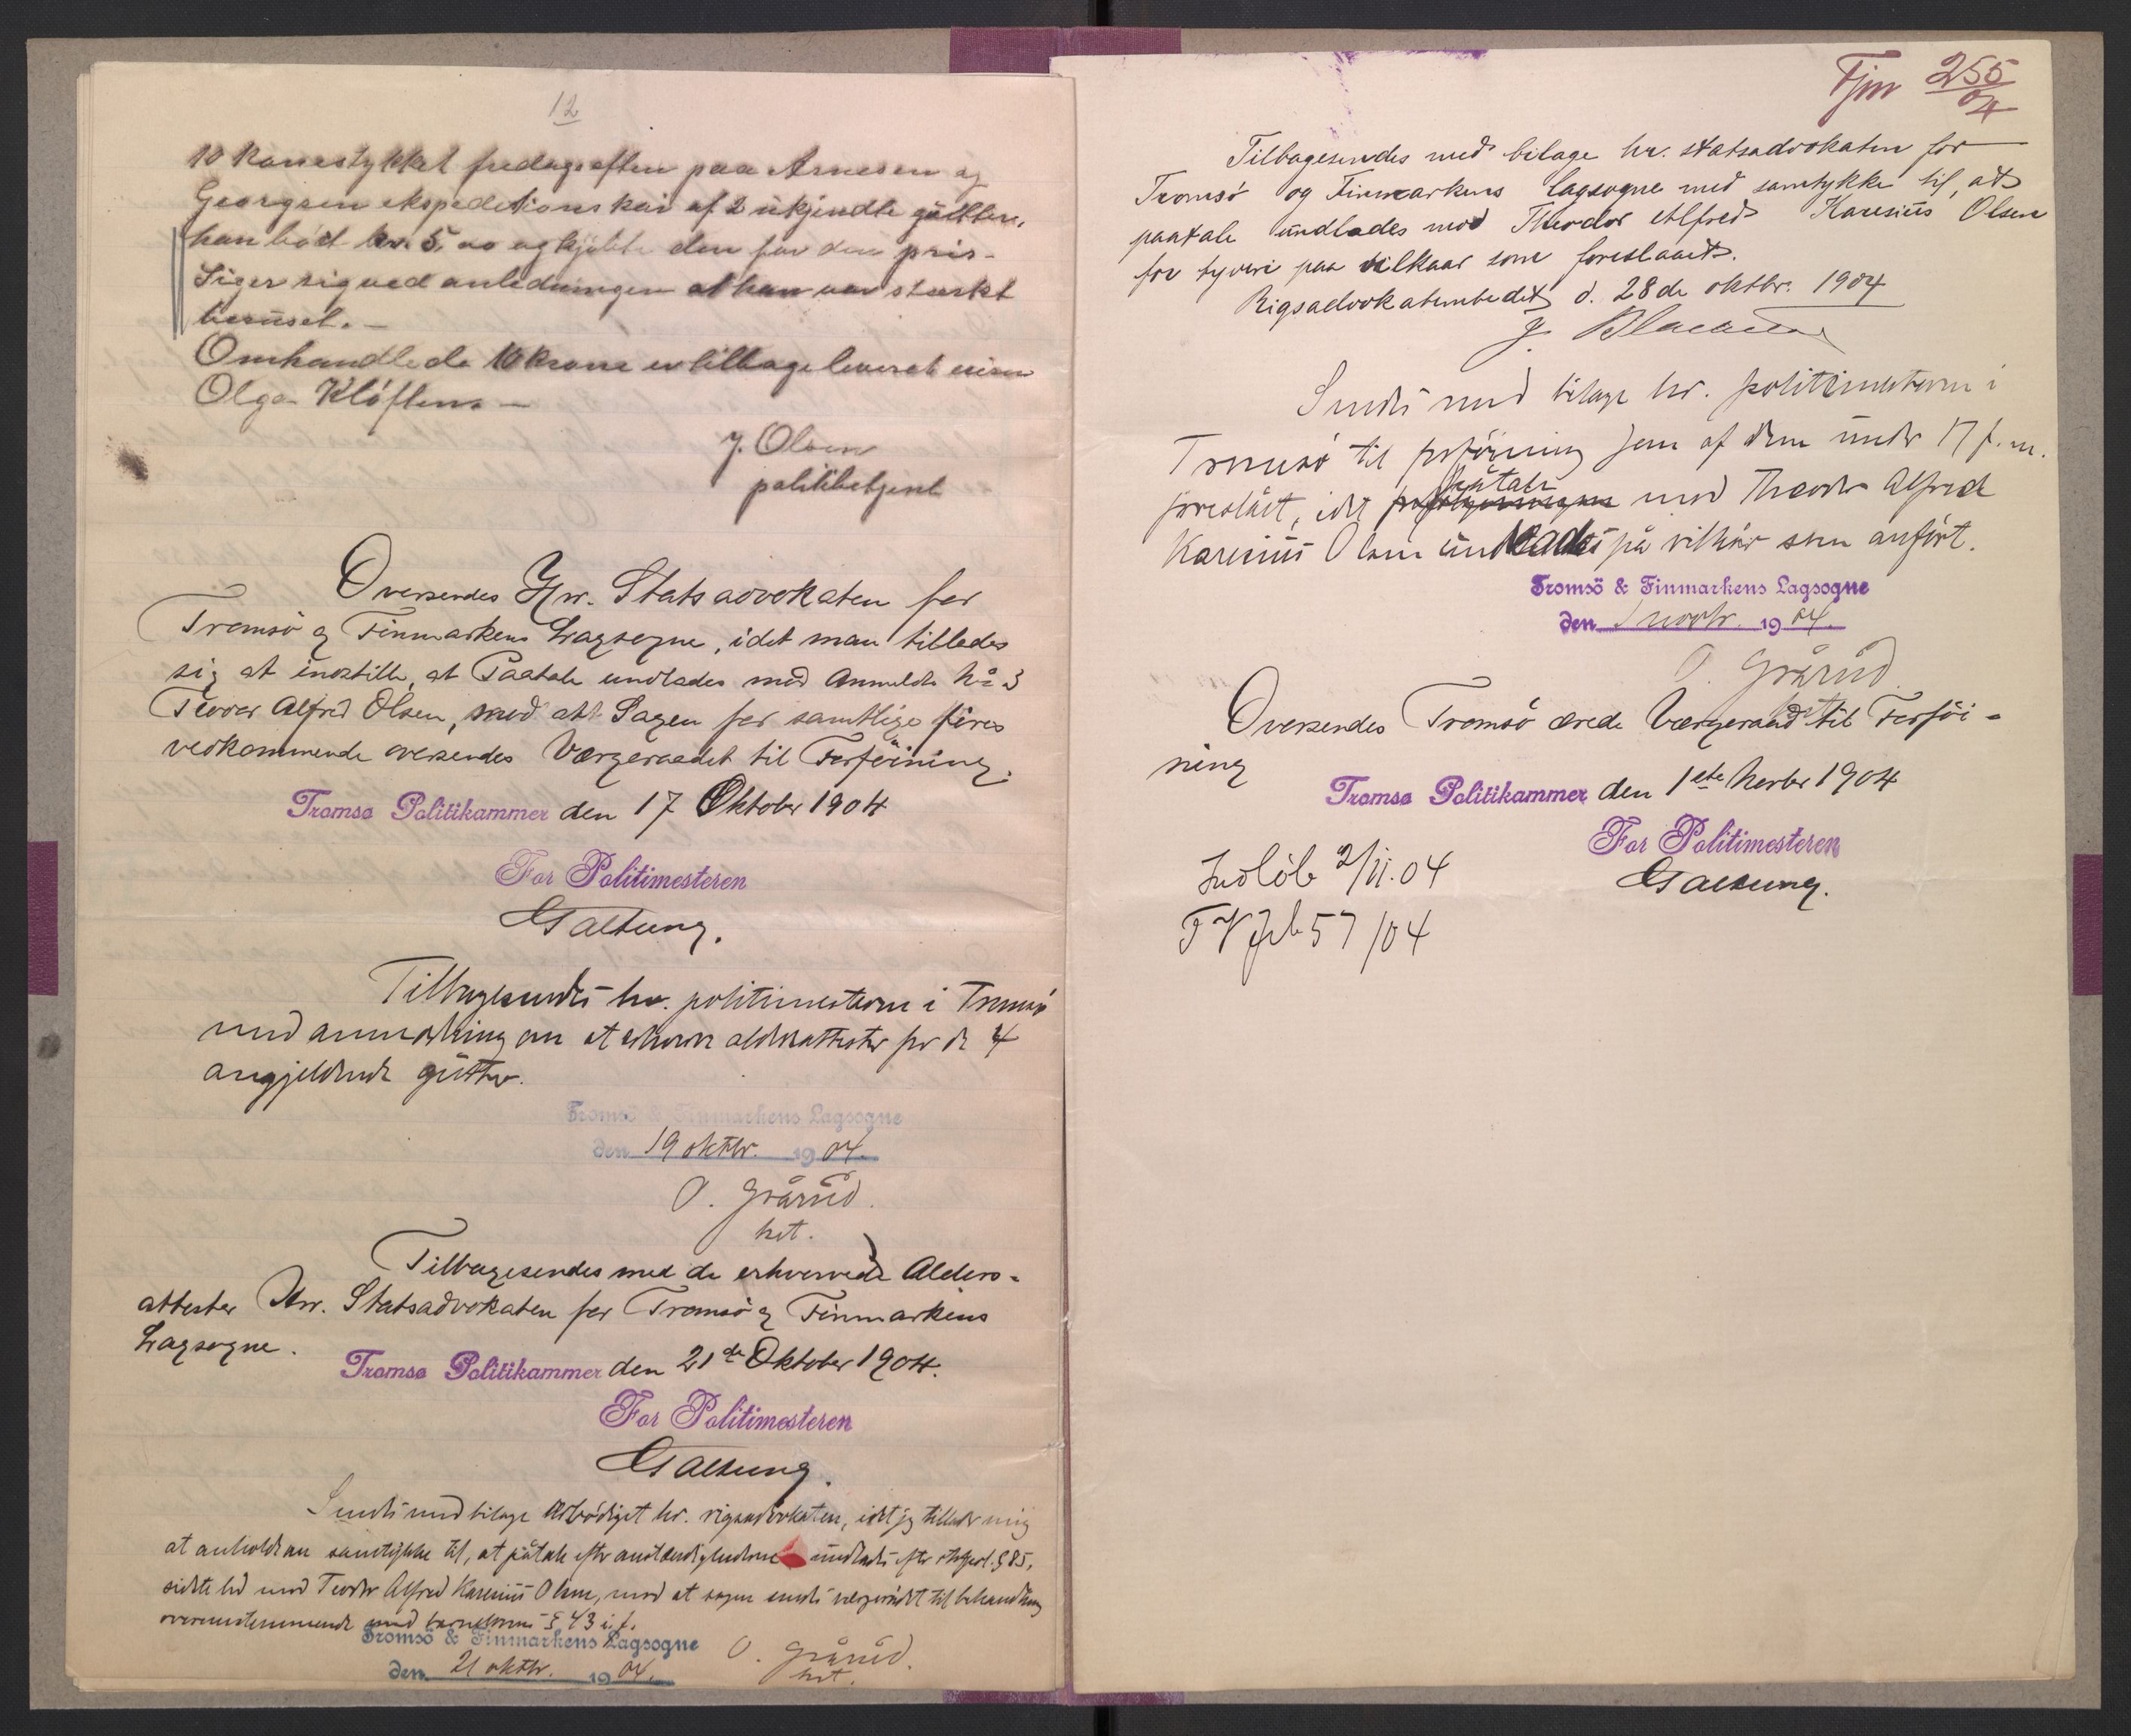 12
10 kronestykket fredagsaften paa Arnesen og
Georgsen ekspeditionskai af 2 ukjendte gutter,
han bød kr. 5,00 og kjøbte den for den pris.
Siger sig ved anledningen at han var stærkt
beruset. —
Omhandlede 10 krone er tilbageleveret
Olga Kløften —
J. Olsen
politibetjent
Oversendes Hr. Statsadvokaten for
Tromsö og Finmarkens Lagsogne, idet man tillader
sig at indstille, at Paatale undlades mod Anmeldte No 3
Teodor Alfred Olsen, mod at Sagen for samtlige fires
vedkommende oversendes Værgeraadet til Forföining.
Tromsø Politikammer den 17 Oktober 1904
For Politimesteren
Galtung.
Tilbagesendes hr. politimesteren i Tromsö
med anmodning om at erhverve aldersattester for de 4
angjeldende gutter.
Tromsö & Finmarkens Lagsogne
den 19 oktbr. 1904.
O. Grårud.
kst.
Tilbagesendes med de erhvervede Alders-
attester Hr. Statsadvokaten for Tromsö og Finmarkens
Lagsogne.
Tromsø Politikammer den 21de Oktober 1904.
For Politimesteren
Galtung.
Sendes med bilage ærbödigst hr. rigsadvokaten, idet jeg tillader mig
at anholde om samtykke til, at påtale efter omstændighederne undlades efter strfprl. § 85,
sidste led mod Teodor Alfred Karenius Olsen, mod at sagen sendes vergerådet til behandling
overensstemmende med barnelovens § 43 i. f.
Tromsö & Finmarkens Lagsogne
den 21 oktbr. 1904.
O. Grårud.
kst.
Fjm 255/04
Tilbagesendes med bilage hr. statsadvokaten for
Tromsö og Finmarkens lagsogne med samtykke til, at
paatale undlades mod Theodor Alfred Karesius Olsen
for tyveri paa vilkaar som foreslaaet.
Rigsadvokatembedet d. 28de oktbr. 1904
Sendes med bilage hr. politimesteren i
Tromsö til forföining som af dem under 17 f. m.
påtale
foreslået, idet mod Theodor Alfred
Karenius Olsen undlades på vilkår som anfört.
Tromsö & Finmarkens Lagsogne
den 1 novbr. 1904.
O. Grårud
kst.
Oversendes Tromsö ærede Værgeraad til Forföi-
ning
Tromsø Politikammer den 1ste Novbr 1904
For Politimesteren
Galtung.
Indløb 2/11.04
T V Jrl 57/04